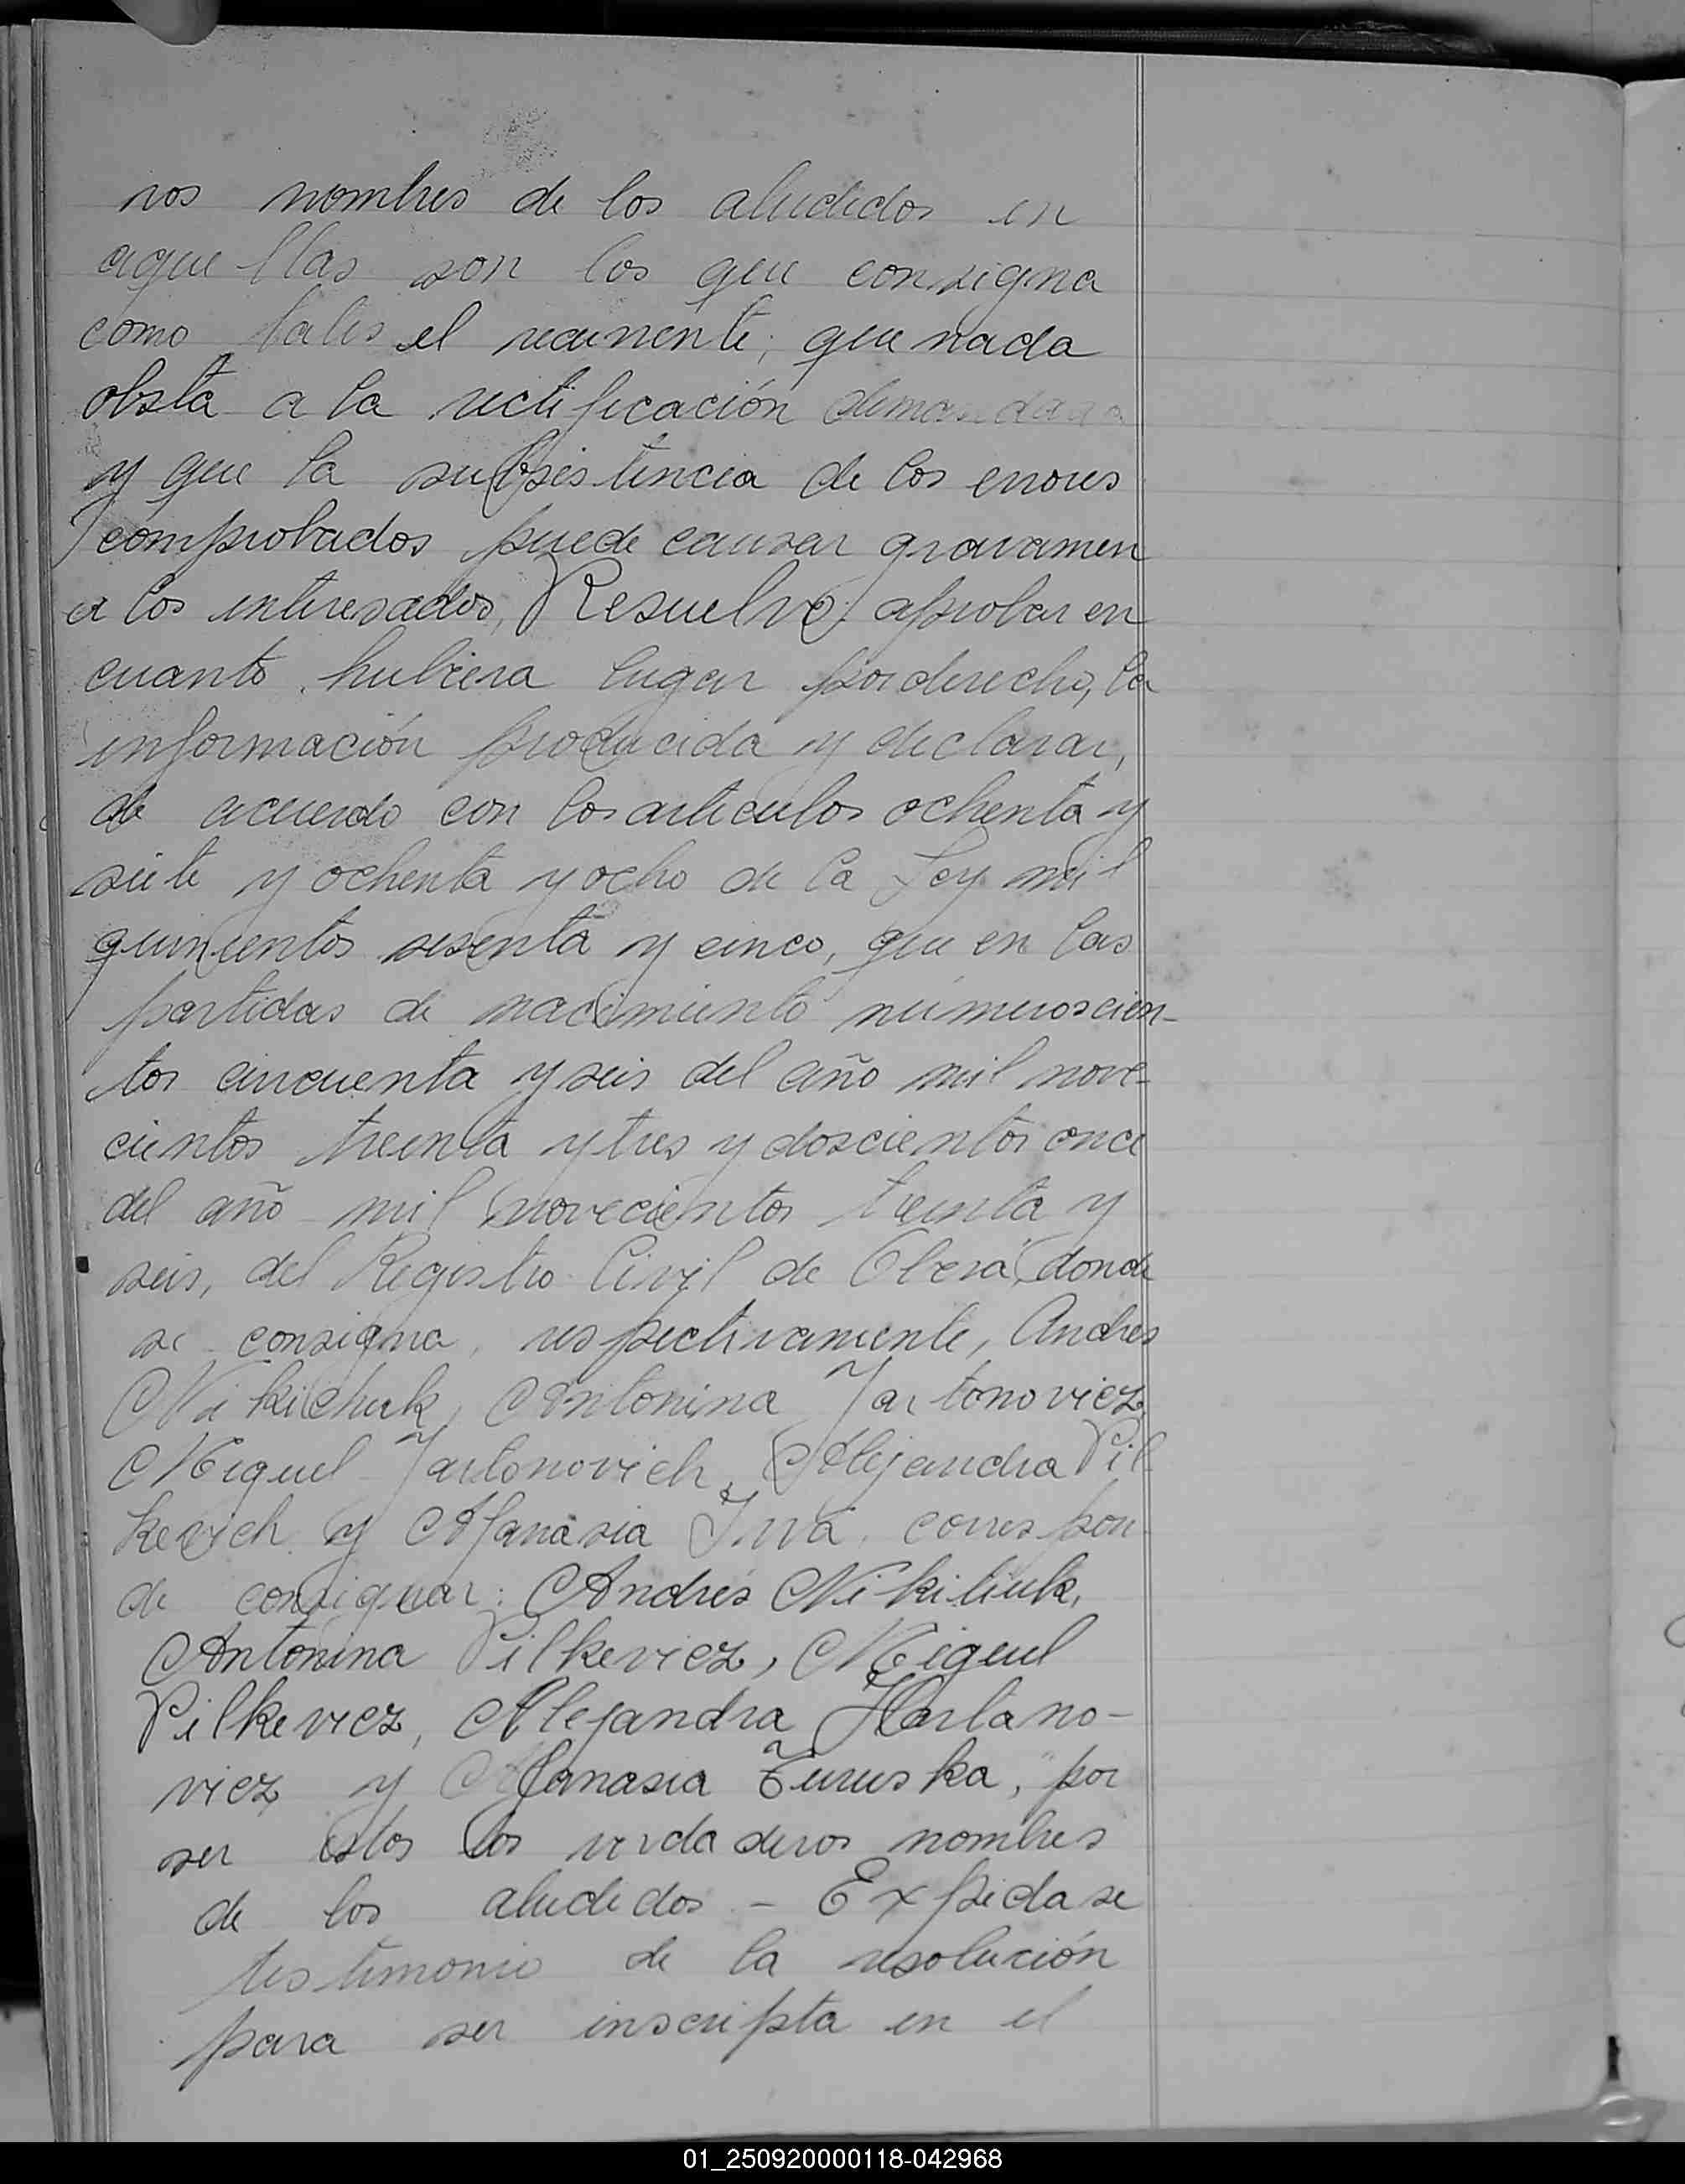 ros nombres de los aludidos en
aquellas son los que consigna
como tales el recurrente; que nada
obsta a la rectificación demandada
y que la subsistencia de los errores
comprobados puede causar gravamen
a los interesados, Resuelvo: aprobar en
cuanto hubiera lugar por derecho, la
información producida y declarar,
de acuerdo con los artículos ochenta y
siete y ochenta y ocho de la Ley mil
quinientos sesenta y cinco, que en las
partidas de nacimiento números cien-
tos cincuenta y seis del año mil nove-
cientos treinta y tres y doscientos once
del año mil novecientos treinta y
seis, del Registro Civil de Oberá, donde
se consigna, respectivamente, Andres
Nikichuk, Antonina Jartonovicz,
Miguel Jartonovich, Alejandra Pil
kevich y Afanasia Inva, correspon
de consignar: Andrés Nikiliuk,
Antonina Pilkevicz, Miguel
Pilkevicz, Alejandra Hartano-
vicz y Afanasia Turuska, por
ser estos los verdaderos nombres
de los aludidos - Expidase
testimonio de la resolución
para ser inscripta en el
01_250920000118-042968